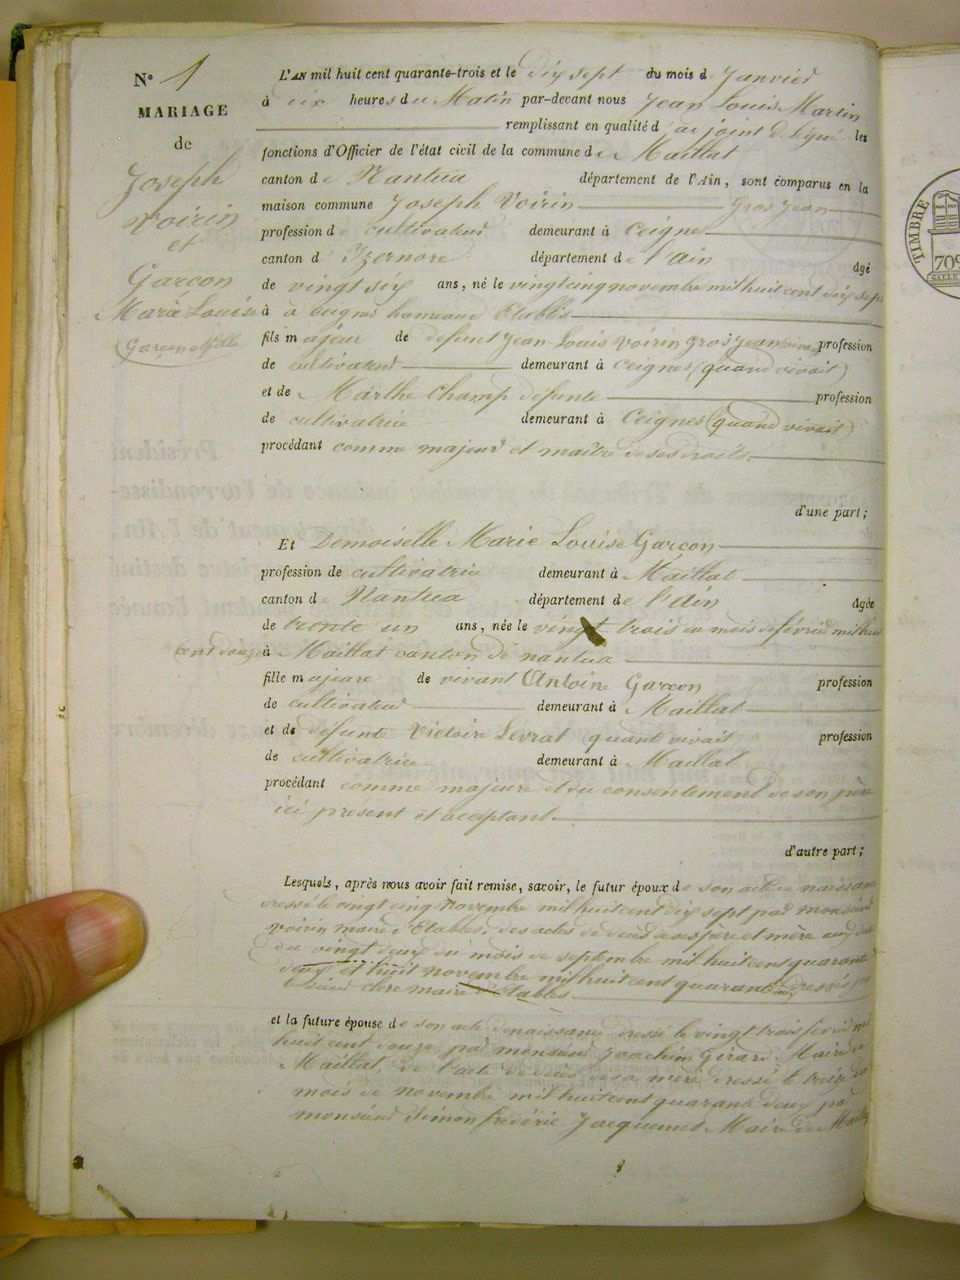 N° 1
MARIAGE
de
Joseph
Voirin
et
Garçon
Marie Louise
(Garçon fille
L'AN mil huit cent quarante-trois et le dix sept du mois de Janvier
à dix heures du Matin par-devant nous Jean Louis Martin
remplissant en qualité d'adjoint délégué les
fonctions d'Officier de l'état civil de la commune de Maillat
canton de Nantua département de l'Ain, sont comparus en la
maison commune Joseph Voirin Gros Jean
profession de cultivateur demeurant à Ceignes
canton d Izernore département de l'ain âgé
de vingt six ans, né le vingt cinq novembre mil huit cent dix sept
à à ceignes hameau Etables
fils majeur de defunt Jean Louis Voirin Gros Jean profession
de cultivateur demeurant à Ceignes (quand vivait)
et de Marthe Champ defunte profession
de cultivatrice demeurant à Ceignes (quand vivait)
procédant comme majeur et maître de ses droits
d'une part;
Et Demoiselle Marie Louise Garçon
profession de cultivatrice demeurant à Maillat
canton de Nantua département de l'ain âgée
de trente un ans, née le vingt trois du mois de février mil huit
cent douze à Maillat canton de nantua
fille majeure de vivant Antoine Garçon profession
de cultivateur demeurant à Maillat
et de defunte Victoire Levrat quant vivait profession
de cultivatrice demeurant à Maillat
procédant comme majeure et du consentement de son père
ici present et acceptant
d'autre part;
Lesquels, après nous avoir fait remise, savoir, le futur époux de son acte de naissance
dressé le vingt cinq Novembre mil huit cent dix sept par monsieur
Voirin maire d'Etables, des actes de décès de ses père et mère
du vingt deux du mois de septembre mil huit cent quarante
deux et huit novembre mil huit cent quarante dressés par
maire d'Etables
et la future épouse de son acte de naissance dressé le vingt trois février mil
huit cent douze par monsieur Joachim Girard Maire de
Maillat, de l'acte de décès de sa mère dressé le treize du
mois de novembre mil huit cent quarante deux par
monsieur Simon frédéric Jacquemet Maire de Maillat
TIMBRE